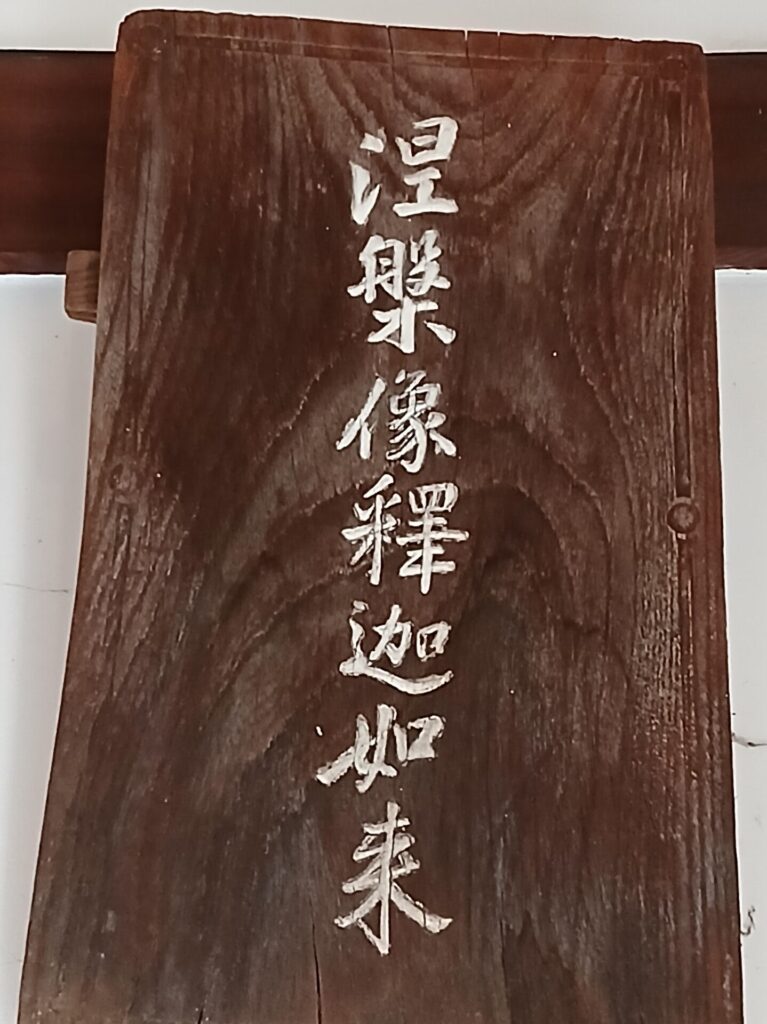 涅槃像釋迦如来